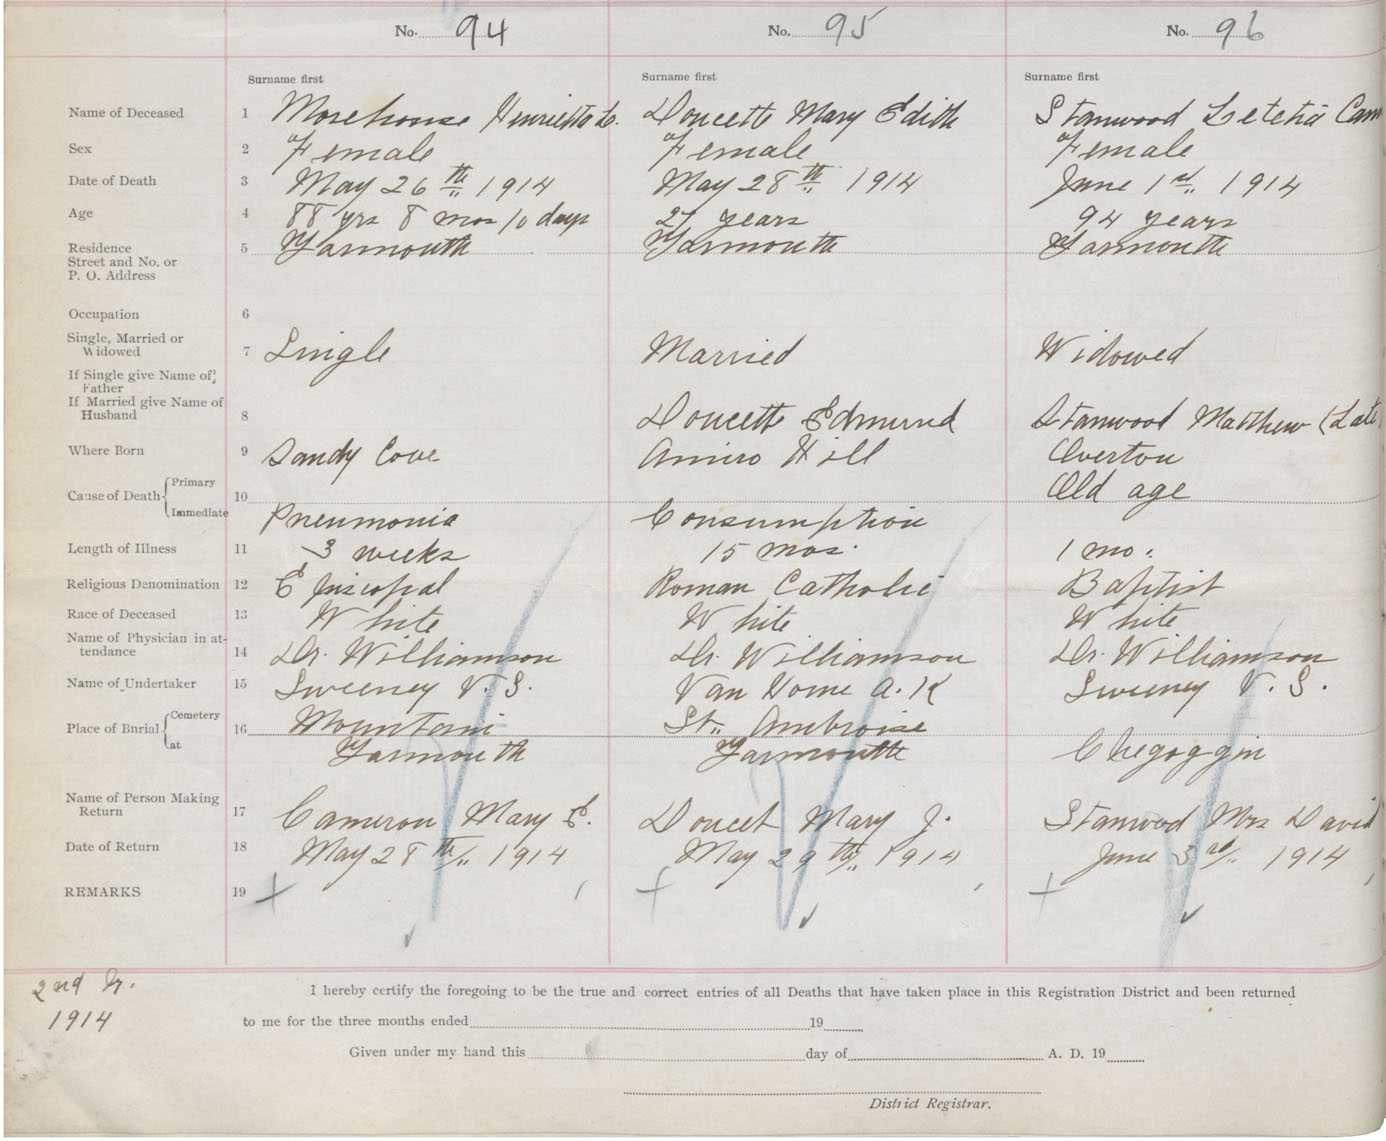 No. 94 No. 95 No. 96
Surname first Surname first Surname first
Name of Deceased 1 Morehouse Henrietta Doucette Mary Edith Stanwood Letetia Cam
Sex 2 Female Female Female
Date of Death 3 May 26th 1914 May 28th 1914 June 1st 1914
Age 4 88 yrs 8 mos 10 days 27 years 94 years
Residence 5 Yarmouth Yarmouth Yarmouth
Street and No. or
P. O. Address
Occupation 6
Single, Married or
Widowed 7 Single Married Widowed
If Single give Name of
Father
If Married give Name of
Husband 8 Doucette Edmund Stanwood Matthew (Late)
Where Born 9 Sandy Cove Amiro Hill Overton
Cause of Death Primary 10 Old age
Immediate Pneumonia Consumption
Length of Illness 11 3 weeks 15 mos. 1 mo.
Religious Denomination 12 Episcopal Roman Catholic Baptist
Race of Deceased 13 White White White
Name of Physician in at-
tendance 14 Dr. Williamson Dr. Williamson Dr. Williamson
Name of Undertaker 15 Sweeney V. S. Van Horne A. K Sweeney V. S.
Place of Burial Cemetery 16 Mountain St. Ambroise
at Yarmouth Yarmouth Chegoggin
Name of Person Making
Return 17 Cameron Mary E. Doucet Mary J. Stanwood Mrs David
Date of Return 18 May 28th 1914 May 29th 1914 June 3rd 1914
REMARKS 19
2nd
1914
I hereby certify the foregoing to be the true and correct entries of all Deaths that have taken place in this Registration District and been returned
to me for the three months ended 19
Given under my hand this day of A. D. 19
District Registrar.